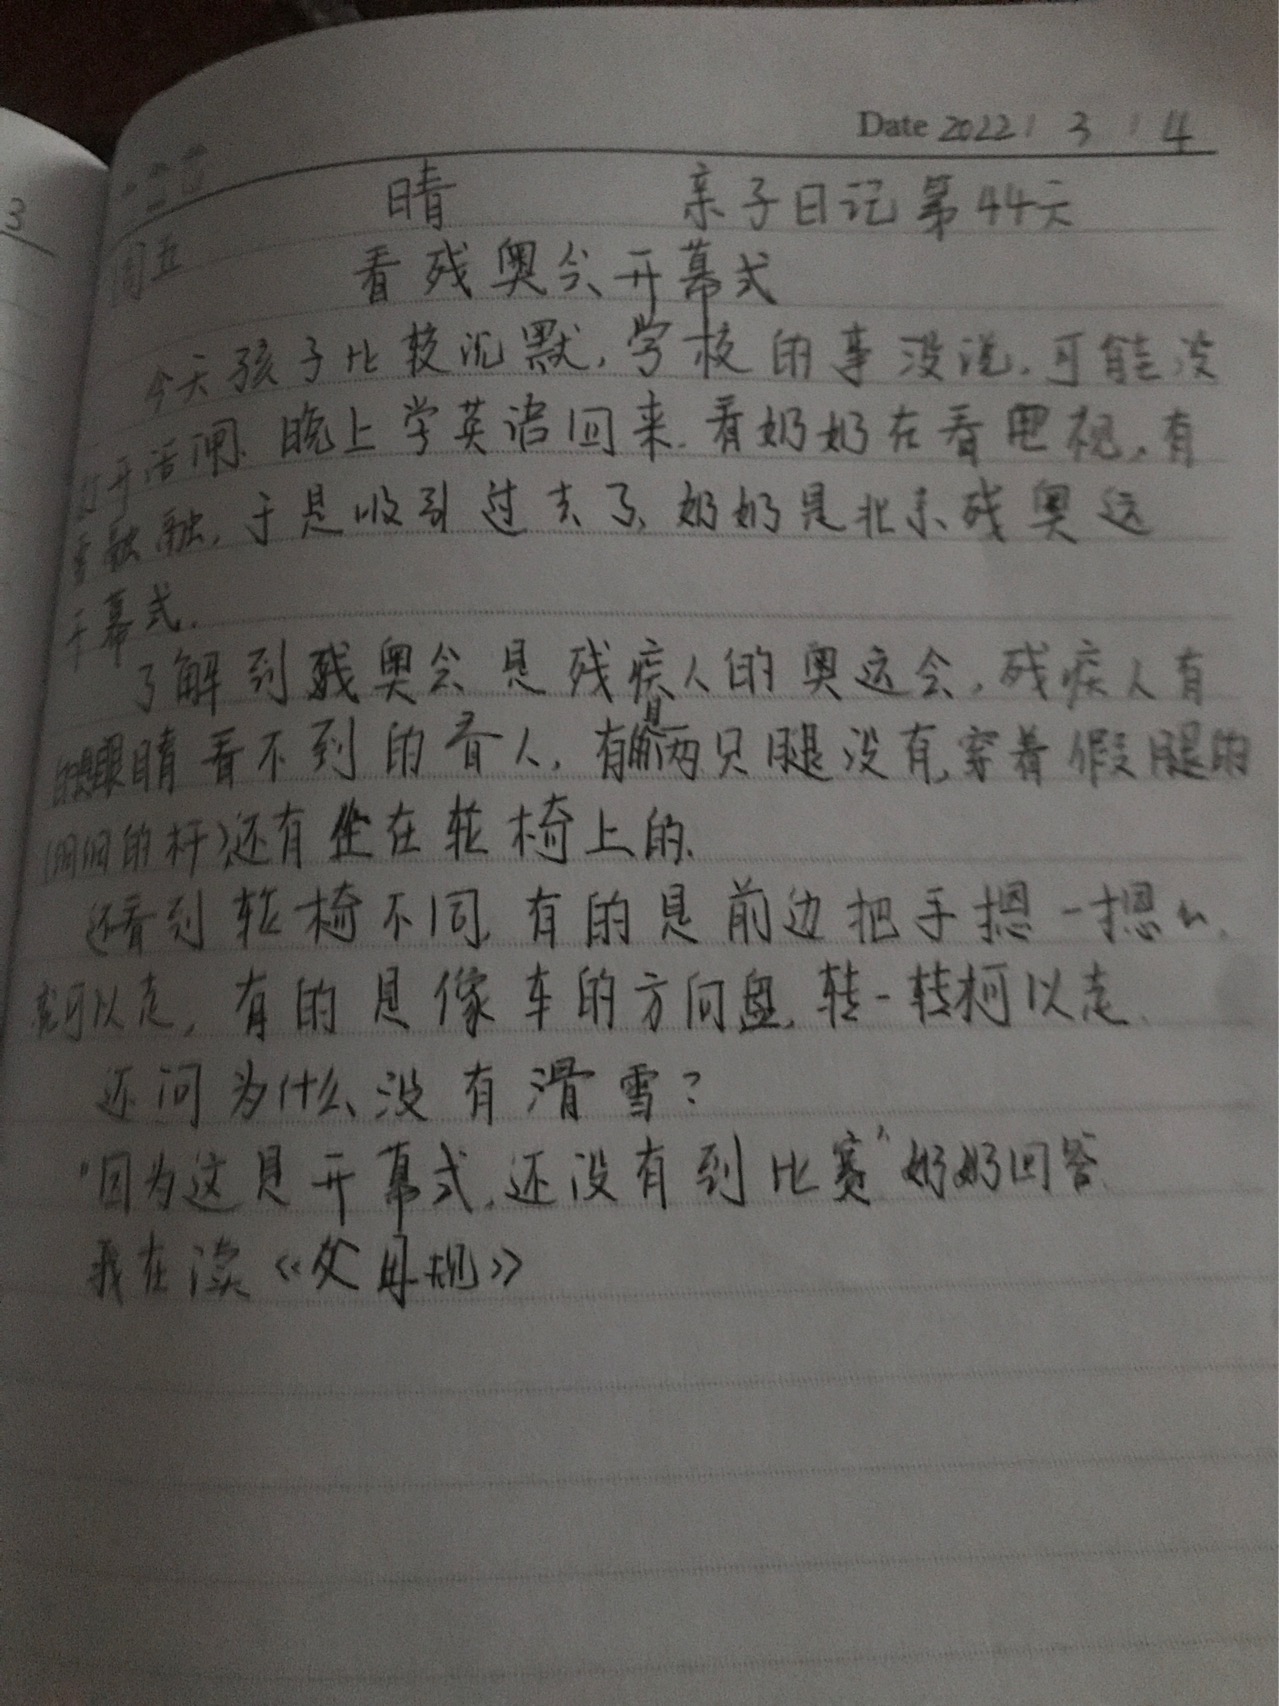 Date 2022 3 4
3
周五 晴 亲子日记第44天
看残奥会开幕式
今天孩子比较沉默,学校的事没说,可能没
打开话闸.晚上学英语回来.看奶奶在看电视,有
融融,于是吸引过去了,奶奶是北京残奥运
开幕式.
了解到残奥会是残疾人的奥运会,残疾人有
眼睛看不到的盲人,有的两只腿没有,穿着假腿的
的杆)还有坐在轮椅上的.
还看到轮椅不同,有的是前边把手摁一摁
就可以走,有的是像车的方向盘,转一转可以走.
还问为什么没有滑雪?
"因为这是开幕式,还没有到比赛"奶奶回答.
我在读《父母规》